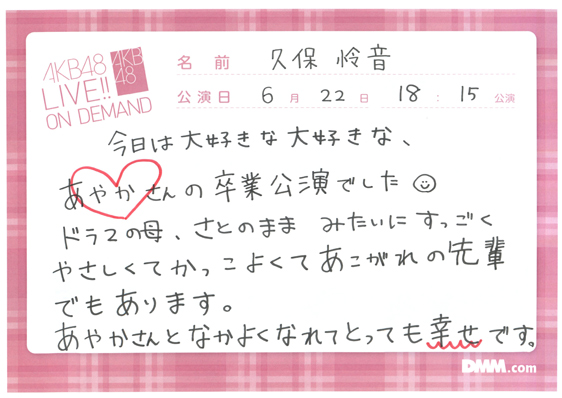 AKB48
LIVE!!
ON DEMAND
AKB
48
名前 久保 怜音
公演日 6月 22日 18:15 公演
今日は大好きな大好きな、
あやかさんの卒業公演でした
ドラ2の母、さとのまま みたいにすっごく
やさしくてかっこよくてあこがれの先輩
でもあります。
あやかさんとなかよくなれてとっても幸せです。
DMM.com